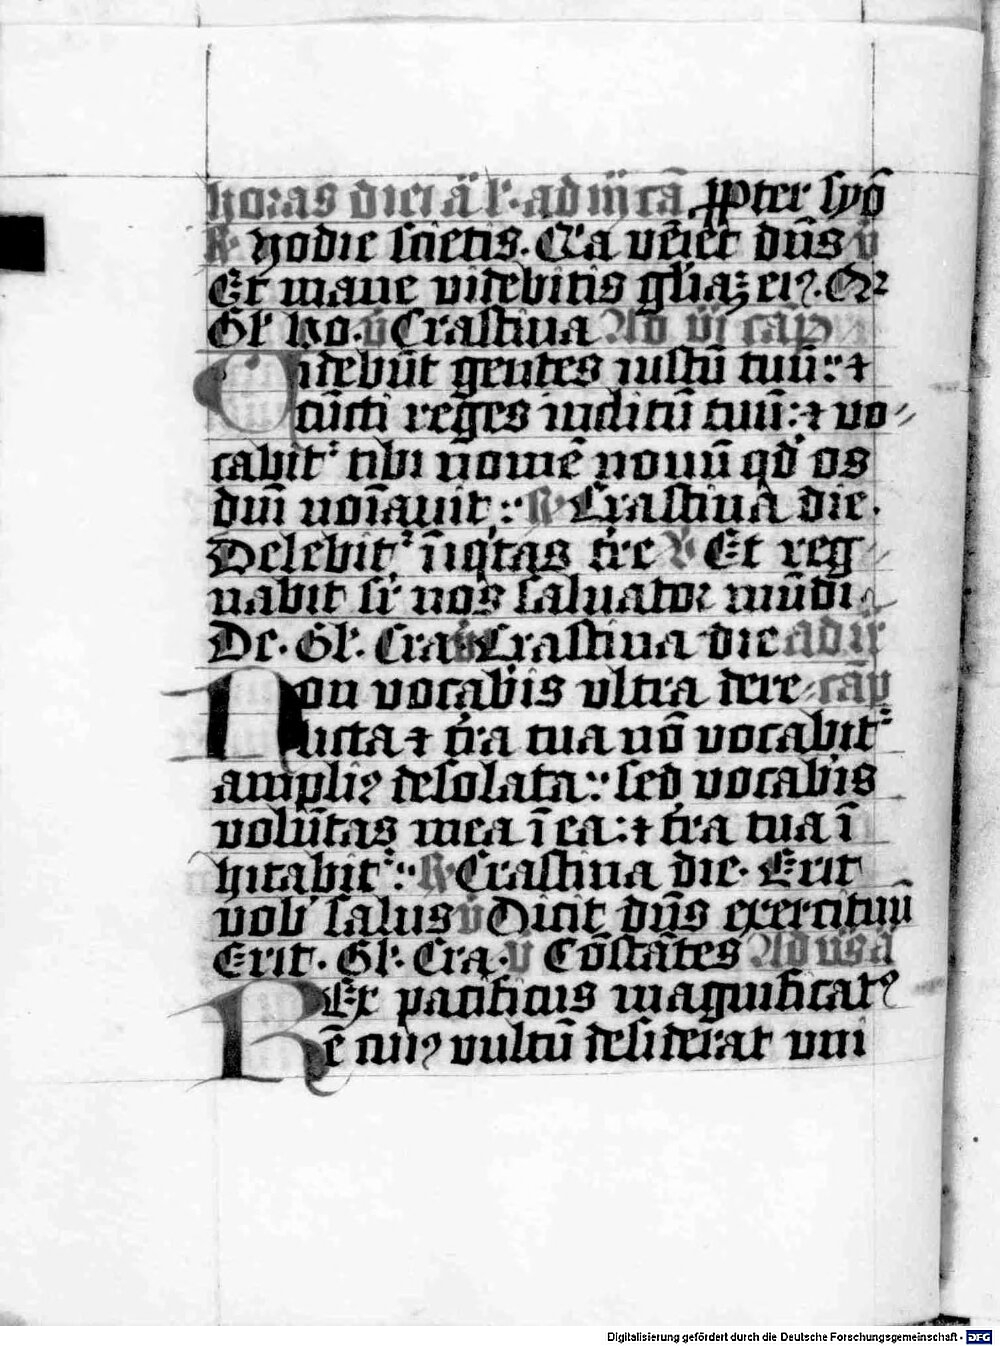 horas dicit᷑ a᷑ l᷑. ad iij cā ꝓpter syō
R. hodie scietis. Q᷑a vēiet dn̄s v̄
Et mane videbitis gl̄iaꝫ eiꝰ. Q᷑
Gl᷑ ho. v̄ Crastina Ad iij cap̄
Videbūt gentes iustū tuū: ⁊
cūcti reges inclitū tuū: ⁊ vo
cabit᷑ tibi nomē nouū qd᷑ os
dn̄i noīauit: R. Crastina die.
Delebit᷑ īiq᷑tas tr̄e V Et reg
nabit sr̄ nos saluator mūdi
De. Gl᷑. Cra v̄ Crastina die ad ix
Non vocab᷑is vltra dere cāp
licta ⁊ tr̄a tua nō vocabit᷑
ampliꝰ desolata: sed vocab᷑is
volūtas mea ī ea: ⁊ tr̄a tua ī
hitabit᷑: R. Crastina die. Erit
vob᷑ salus v̄ Dicit dn̄s exercituū
Erit. Gl᷑. Cra. v̄ Cōstātes Ad vs̄a᷑
REx pacificus magnificatꝰ
ē cuiꝰ vultū desiderat vni
Digitalisierung gefördert durch die Deutsche Forschungsgemeinschaft - DFG